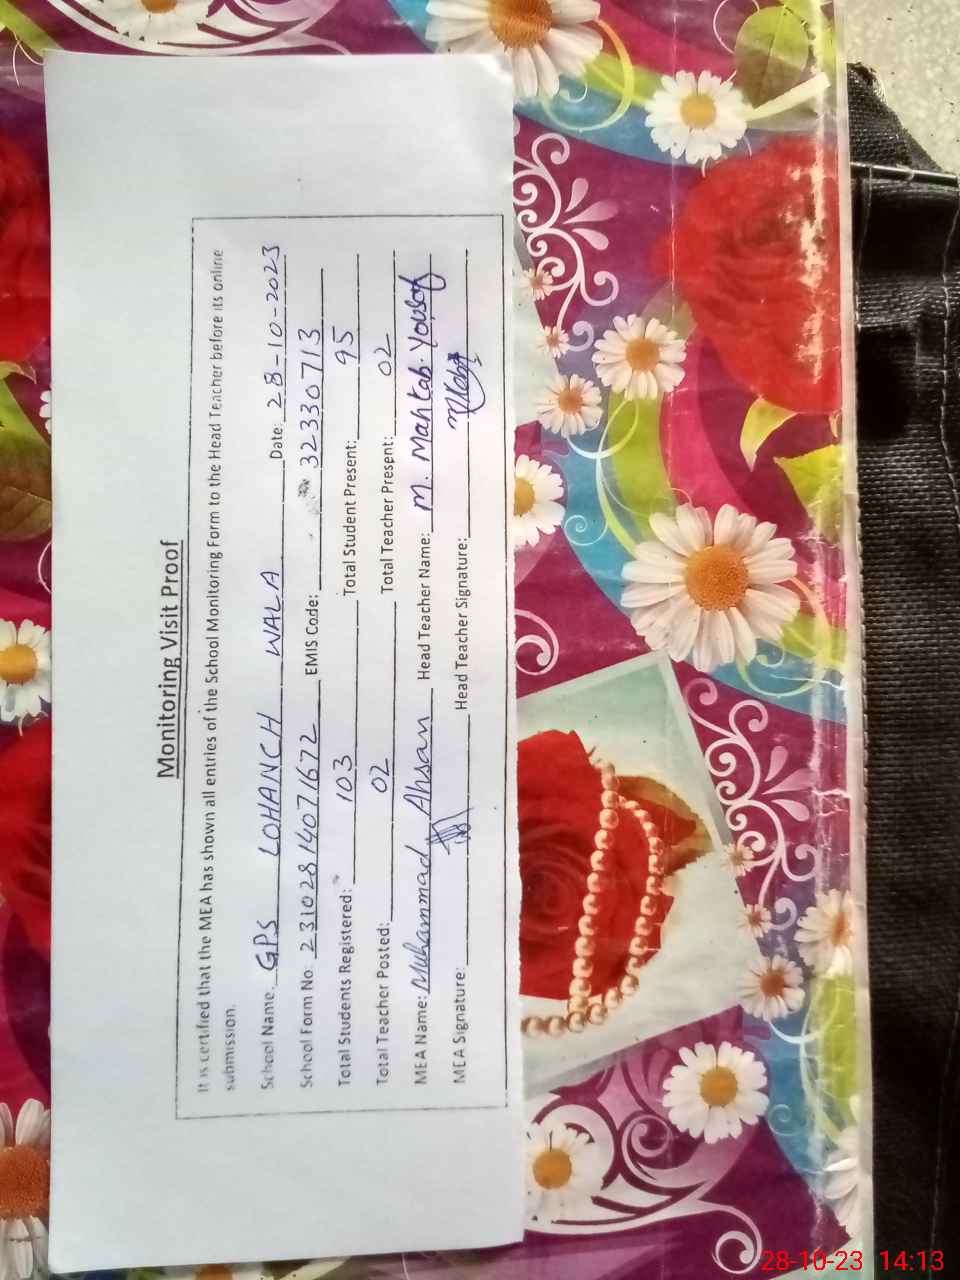 Monitoring Visit Proof
It is certified that the MEA has shown all entries of the School Monitoring Form to the Head Teacher before its online
submission.
School Name: GPS LOHANCH WALA Date: 28-10-2023
School Form No: 23102814071672 EMIS Code: 32330713
Total Students Registered: 103 Total Student Present: 95
Total Teacher Posted: 02 Total Teacher Present: 02
MEA Name: Muhammad Ahsan Head Teacher Name: M. Mahtab Yousaf
MEA Signature: Head Teacher Signature:
28-10-23 14:13